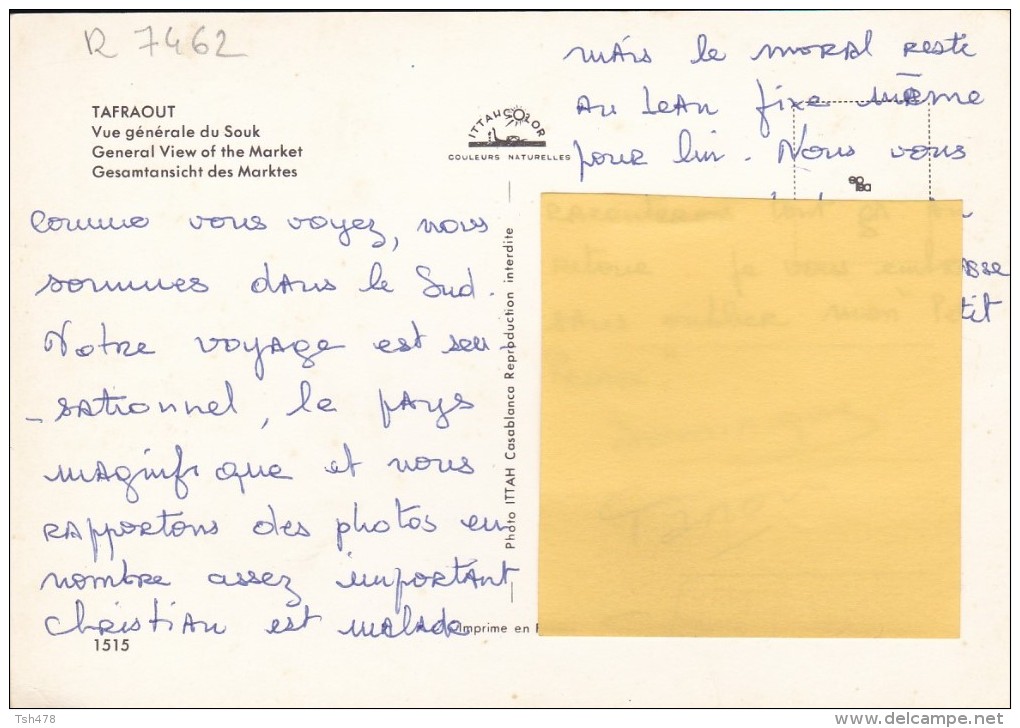 R 7462
TAFRAOUT
Vue générale du Souk
General View of the Market
Gesamtansicht des Marktes
ITTAHCOLOR
COULEURS NATURELLES
Comme vous voyez, nous
sommes dans le Sud.
Notre voyage est sen-
-sationnel, le pays
magnifique et nous
rapportons des photos en
nombre assez important
Christian est malade
1515
Photo ITTAH Casablanca Reproduction interdite
Imprime en
mais le moral reste
au beau fixe même
pour lui. Nous vous
raconterons tout ça au
retour je vous embrasse
sans oublier mon Petit
Tsh478
delcampe.net